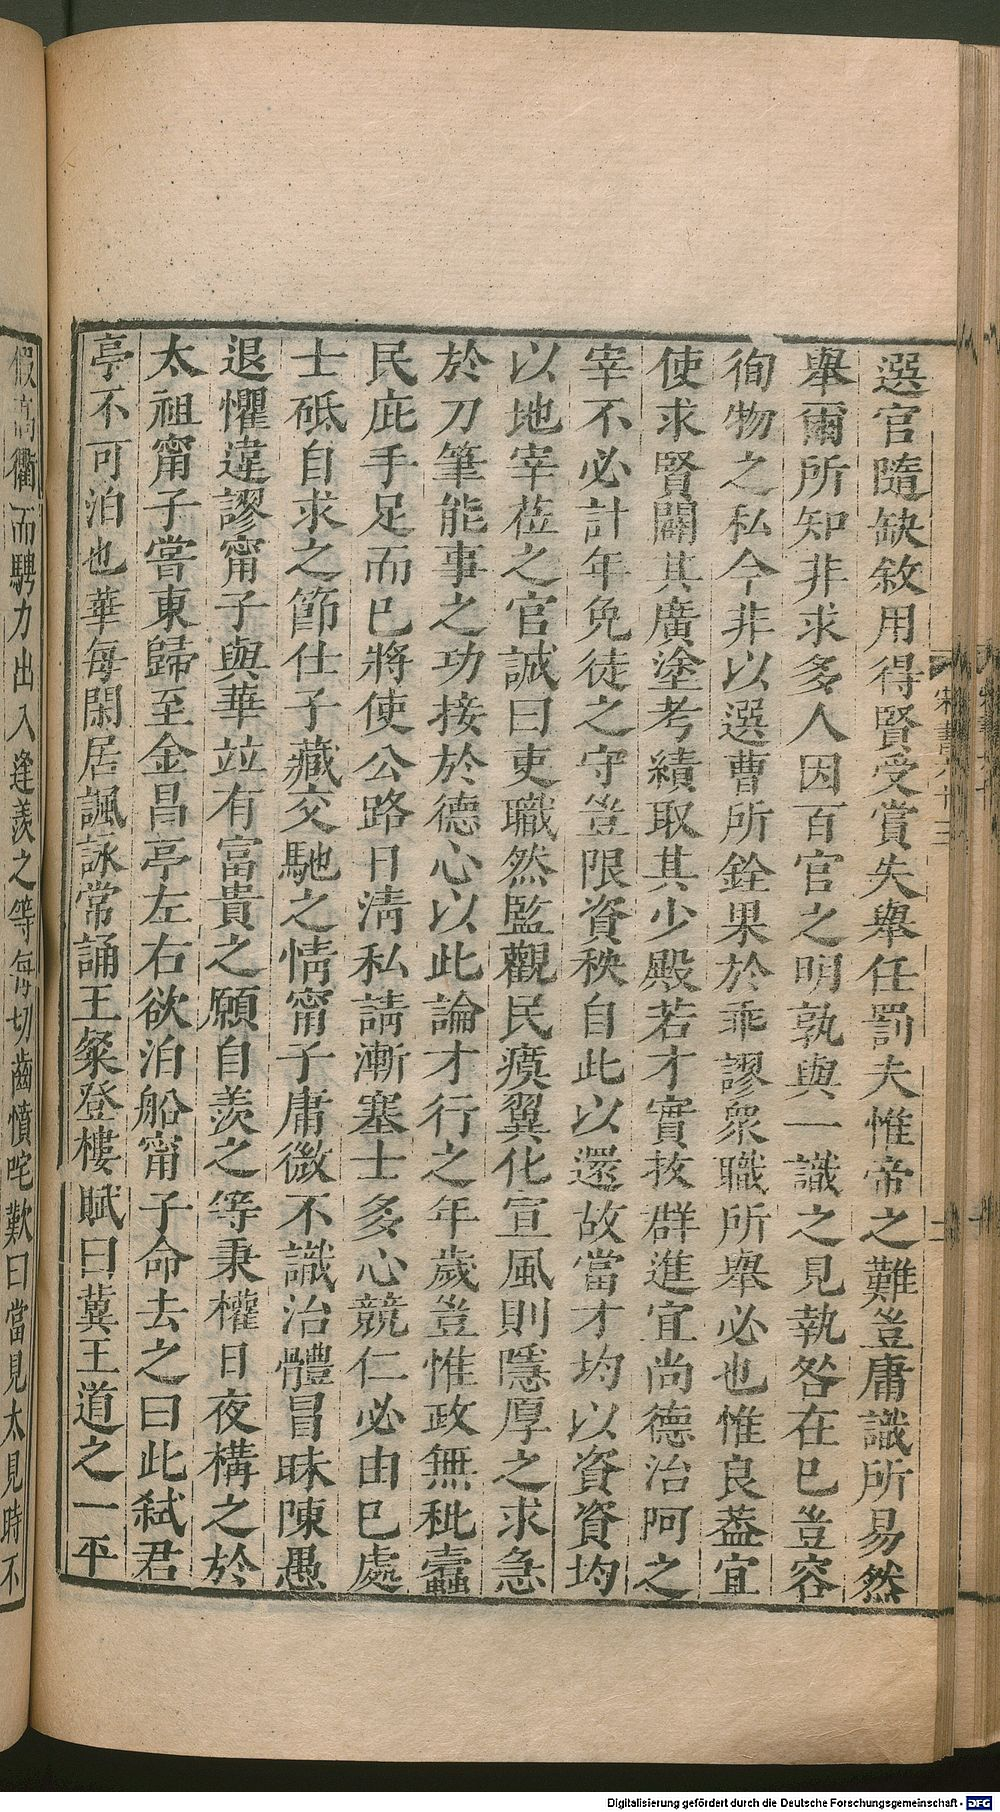 選官隨缺敘用得賢受賞失舉任罰夫惟帝之難豈庸識所易然
舉爾所知非求多人因百官之明孰與一識之見執咎在已豈容
徇物之私今非以選曹所銓果於乖謬眾職所舉必也惟良葢宜
使求賢闢其廣塗考績取其少殿若才實拔群進宜尚德治阿之
宰不必計年免徒之守豈限資秩自此以還故當才均以資資均
以地宰莅之官誠曰吏職然監觀民瘼翼化宣風則隱厚之求急
於刀筆能事之功接於德心以此論才行之年歲豈惟政無秕蠹
民庇手足而已將使公路日清私請漸塞士多心競仁必由已處
士砥自求之節仕子藏交馳之情甯子庸微不識治體冒昧陳愚
退懼違謬甯子與華竝有富貴之願自羡之等秉權日夜構之於
太祖甯子嘗東歸至金昌亭左右欲泊船甯子命去之曰此弒君
亭不可泊也華每閑居諷詠常誦王粲登樓賦曰冀王道之一平
假高衢而騁力出入逢羨之等每切齒憤咤歎曰當見太平時不
宋書六十三
Digitalisierung gefördert durch die Deutsche Forschungsgemeinschaft - DFG